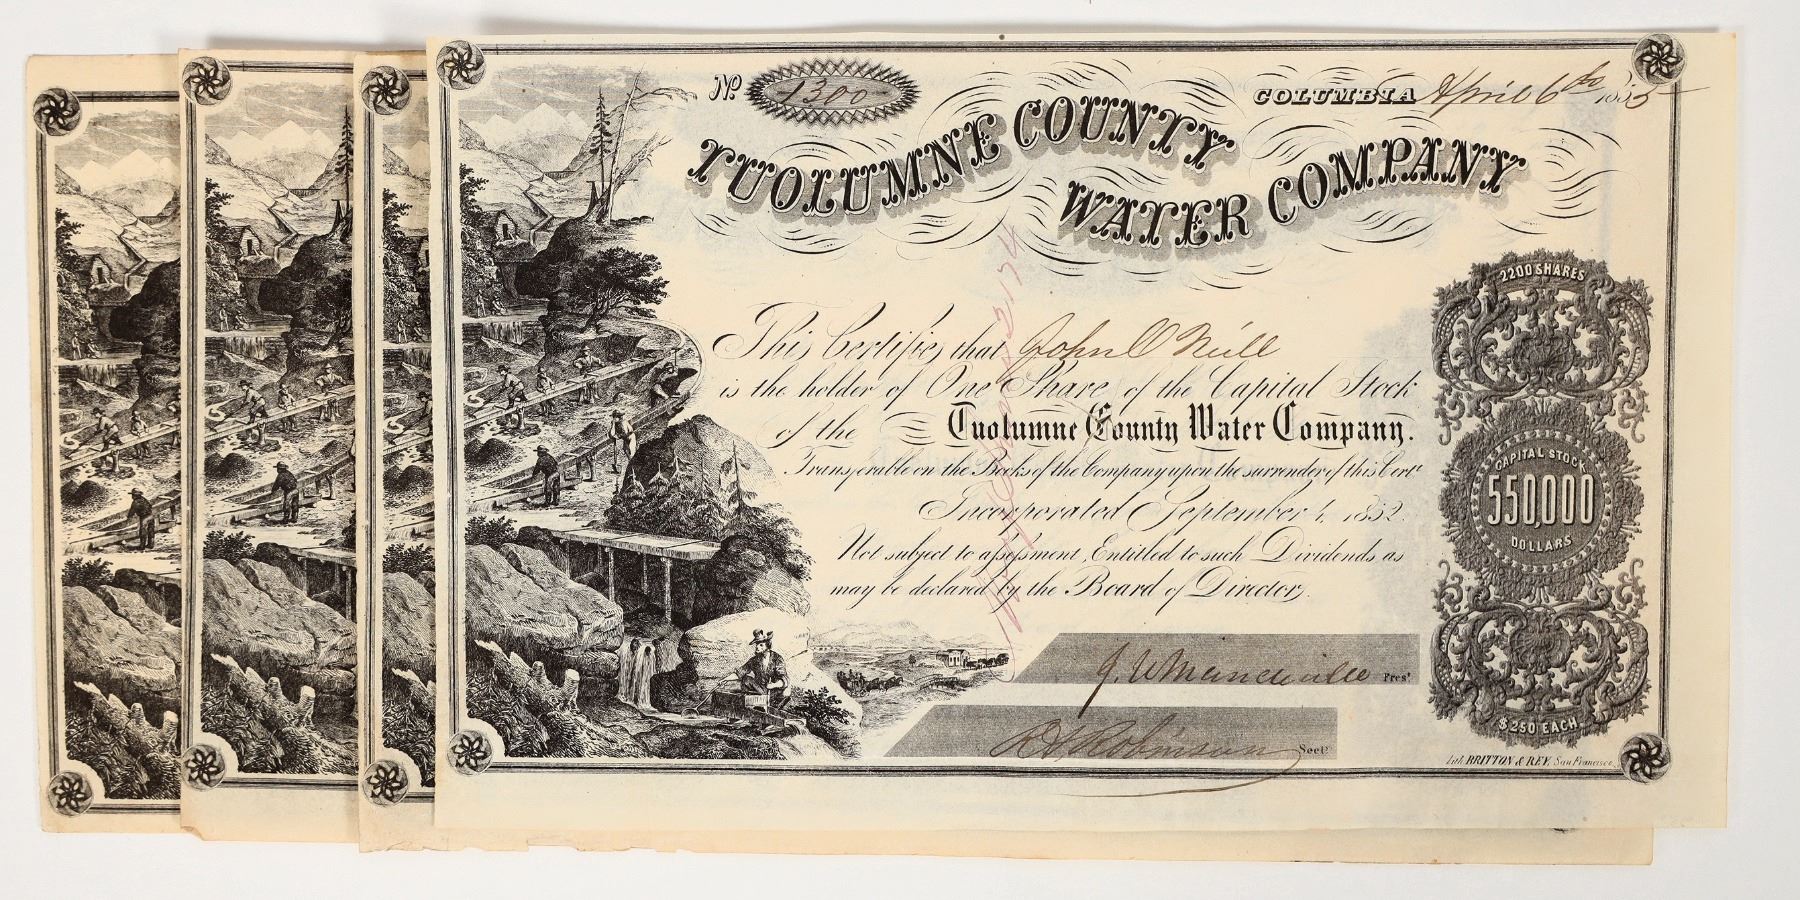 No. 1300
COLUMBIA April 6th 1855
TUOLUMNE COUNTY
WATER COMPANY
This Certifies that John O Neill
is the holder of One Share of the Capital Stock
of the Tuolumne County Water Company.
Transferable on the Books of the Company upon the surrender of this Cert.
Incorporated September 4, 1852.
Not subject to assessment, Entitled to such Dividends as
may be declared by the Board of Directors.
J. W. Mandeville Pres.t
R A Robinson Sect.
2200 SHARES
CAPITAL STOCK
550,000
DOLLARS
$250 EACH
Lith. BRITTON & REY, San Francisco.